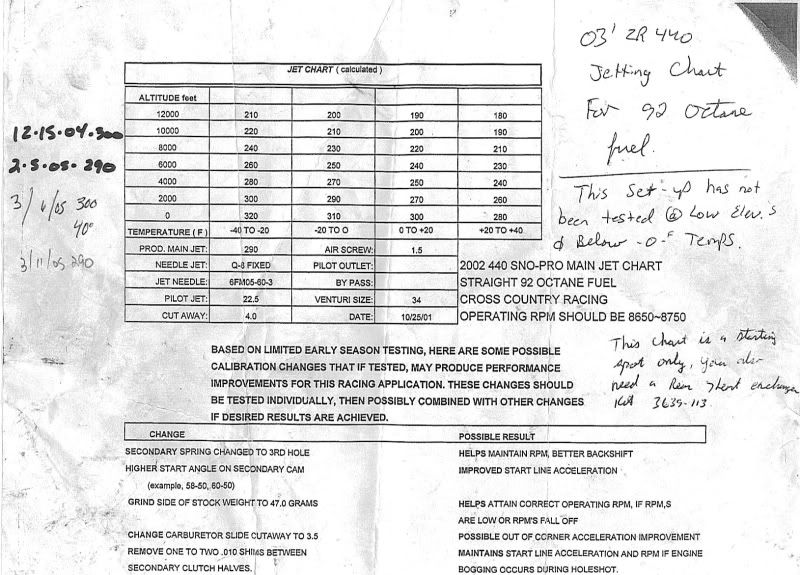 03' ZR 440
Jetting Chart
For 92 Octane
fuel.
This Set-up has not
been tested @ Low Elev.s
& Below -0-F Temps.
12-15-04-300
2-5-05-290
3/ 6/05 300
40°
3/11/05 290
JET CHART ( calculated )
ALTITUDE feet
12000 210 200 190 180
10000 220 210 200 190
8000 240 230 220 210
6000 260 250 240 230
4000 280 270 250 240
2000 300 290 270 260
0 320 310 300 280
TEMPERATURE ( F ) -40 TO -20 -20 TO O 0 TO +20 +20 TO +40
PROD. MAIN JET: 290 AIR SCREW: 1.5
NEEDLE JET: Q-8 FIXED PILOT OUTLET:
JET NEEDLE: 6FM05-60-3 BY PASS:
PILOT JET: 22.5 VENTURI SIZE: 34
CUT AWAY: 4.0 DATE: 10/25/01
2002 440 SNO-PRO MAIN JET CHART
STRAIGHT 92 OCTANE FUEL
CROSS COUNTRY RACING
OPERATING RPM SHOULD BE 8650~8750
This Chart is a starting
spot only, you also
need a Rear Heat exchanger
Kit 3639-113
BASED ON LIMITED EARLY SEASON TESTING, HERE ARE SOME POSSIBLE
CALIBRATION CHANGES THAT IF TESTED, MAY PRODUCE PERFORMANCE
IMPROVEMENTS FOR THIS RACING APPLICATION. THESE CHANGES SHOULD
BE TESTED INDIVIDUALLY, THEN POSSIBLY COMBINED WITH OTHER CHANGES
IF DESIRED RESULTS ARE ACHIEVED.
CHANGE POSSIBLE RESULT
SECONDARY SPRING CHANGED TO 3RD HOLE HELPS MAINTAIN RPM, BETTER BACKSHIFT
HIGHER START ANGLE ON SECONDARY CAM IMPROVED START LINE ACCELERATION
(example, 58-50, 60-50)
GRIND SIDE OF STOCK WEIGHT TO 47.0 GRAMS HELPS ATTAIN CORRECT OPERATING RPM, IF RPM,S
ARE LOW OR RPM'S FALL OFF
CHANGE CARBURETOR SLIDE CUTAWAY TO 3.5 POSSIBLE OUT OF CORNER ACCELERATION IMPROVEMENT
REMOVE ONE TO TWO .010 SHIMS BETWEEN MAINTAINS START LINE ACCELERATION AND RPM IF ENGINE
SECONDARY CLUTCH HALVES. BOGGING OCCURS DURING HOLESHOT.